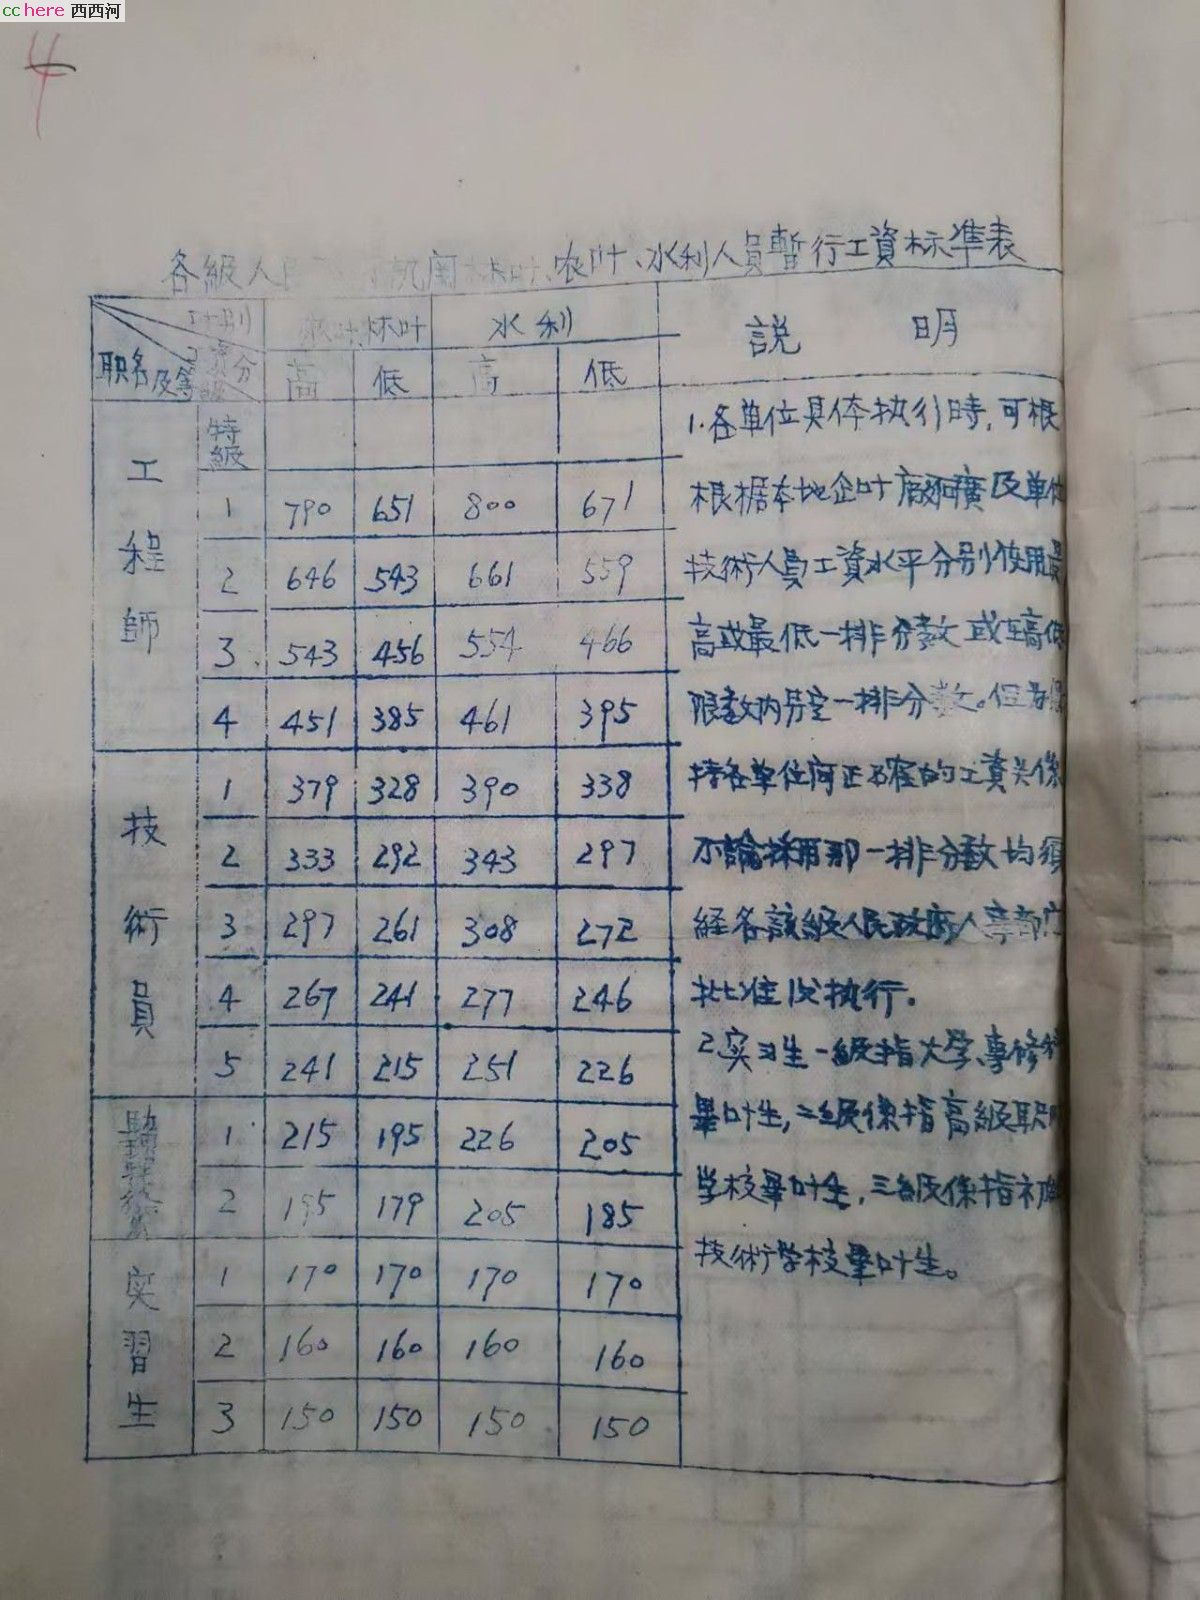 cchere 西西河
4
各級人民 机関林叶、农叶、水利人員暫行工資标準表
叶别 林叶 水利 説明
职名及等級 分 高 低 高 低
工程師
特級
1 790 651 800 671
2 646 543 661 559
3 543 456 554 466
4 451 385 461 395
技術員
1 379 328 390 338
2 333 292 343 297
3 297 261 308 272
4 267 241 277 246
5 241 215 251 226
助
1 215 195 226 205
2 195 179 205 185
实習生
1 170 170 170 170
2 160 160 160 160
3 150 150 150 150
1.各单位具体执行時,可根
根据本地企叶廠 及单位
技術人員工資水平分别使用最
高或最低一排分数或在高低
限数内另定一排分数。但
持各单位间正确的工資关係
不論採用那一排分数均須
経各該級人民政府人事部门
批准后执行.
2.实习生一級指大学、專修科
畢叶生,二級係指高級职
学校畢叶生,三級係指初
技術学校畢叶生。